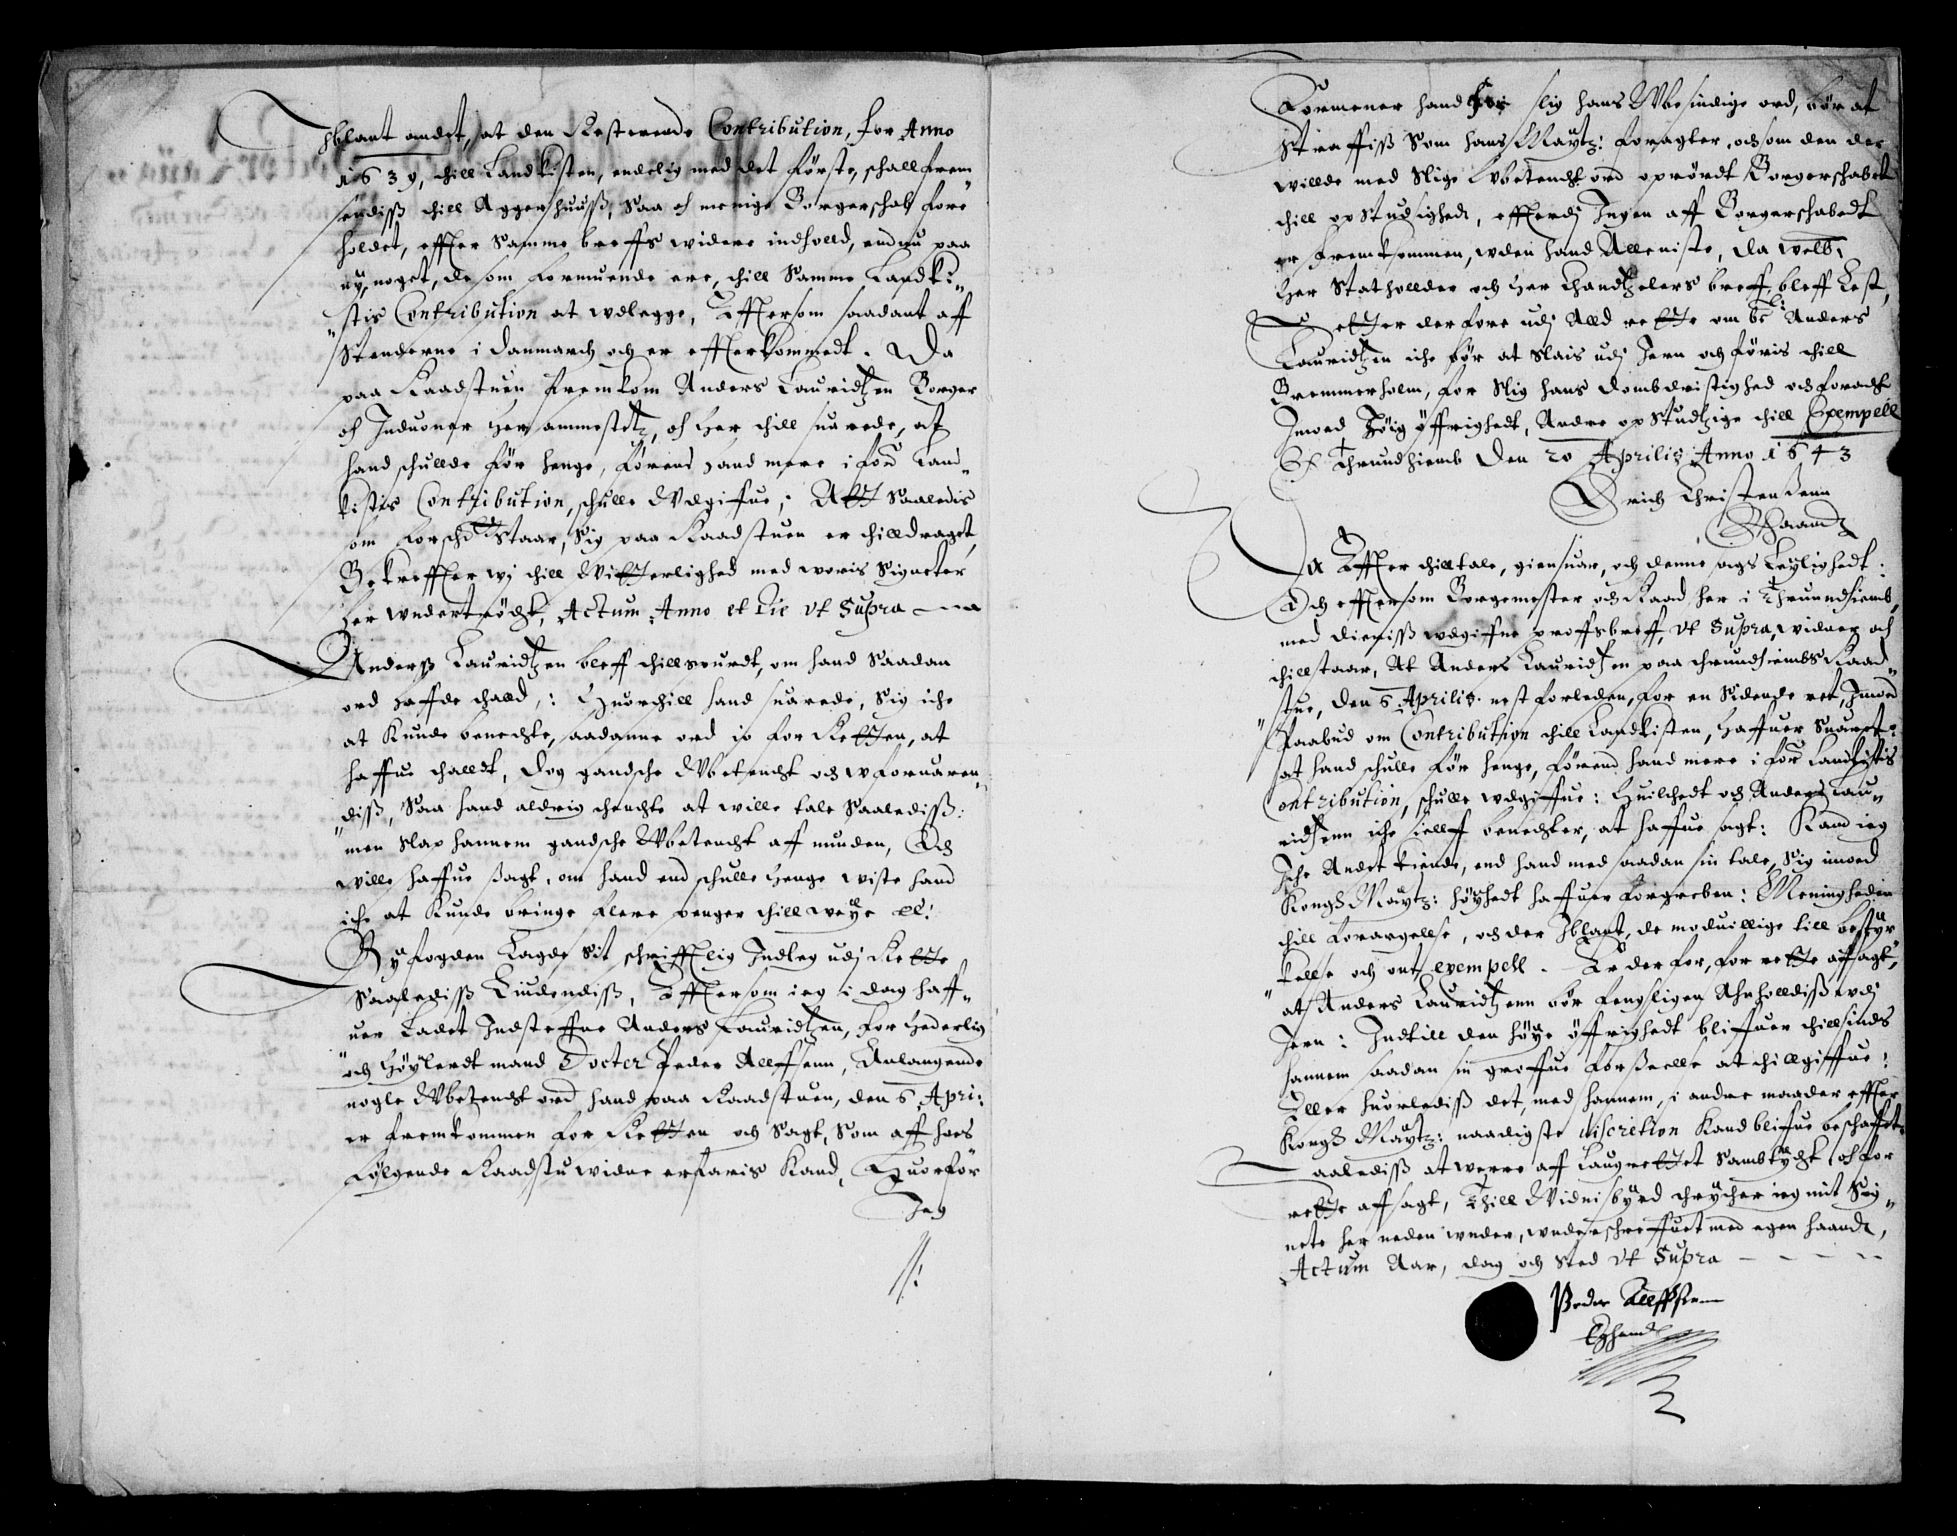 Iblant andet, at den Resterende Contribution, for Anno
1639, thill Landkisten, endelig med det første, schall frem
sendiss thill Aggershuuss, Saa och menige Borgerschab fore
holdet, effter Samme breffs widere indholld, endnu paa
ny, noget, de som formuende ere, thill Samme Landki„
„stis Contribution at wdlegge, Efftersom saadant aff
Stenderne i Danmarch och er effterkommedt. Da
paa Raadstuen fremkom Anders Lauridtzen Borger
och Induoner her ammestetz, och her thill suarede, at
hand schullde før henge, førend hand mere i for: Land„
kistis Contribution, schulle Wdgiffue; Alt Saaledis
som forsch: staar, Sig paa Raadstuen er thilldraget,
Bekreffter wj thill Witterlighed med woris Signeter
her wndertrøcht, Actum Anno et Die vt Supra
Anderss Lauridtzen bleff thillspurdt, om hand Saadan
ord haffde thalld,: Huorthill hand suarede, Sig iche
at Kunde benechte, saadanne ord io for Retten, at
haffue thalldt, dog gandsche Wbetencht och wforuaren„
„diss, Saa hand aldrig thenchte at wille tale Saalediss:
men Slap hannem gandsche Wbetencht aff munden, Och
wille haffue sagt, om hand end schulle henge wiste hand
iche at Kunde bringe flere penger thill weye etc:
Byfogden Lagde Sit schrifftlig Indleg udj Rette
Saalediss Liudendiss, Efftersom ieg i dag haff„
uer Ladet Indsteffne Anders Lauridtzen, for Hederlig
och Høylerdt mand Docter Peder Alffsenn, Anlangende
nogle Wbetencht ord hand paa Raadstuen, den 6 Apri:
er fremkommen for Retten och Sagt, Som aff hoes
følgende Raadstu widne erfaris Kand, Huorfor
Jeg
Formener hand for slig hans Wbesindige ord, bør at
Straffiss Som hans Maytz: foragter, och som den der
willde med Slige Wbetencht ord oprørdt Borgerschabet
thill opstudsighed, effterdj Ingen aff Borgerschabedt
er fremkommen, uden hand Alleniste, da welb:
Her Statholder och Her Chandtzelers breff, bleff Lest,
Setter derfore udj All rette om be: Anders
Lauridtzen iche bør at Slais udj Jern och føris thill
Bremmerholm, for Slig hans dombdristighed och foracht
Imoed Høig Øffrighedt, Andre opstudtzige thill Exempell
Aff Thrundhiemb Den 20 Aprilis Anno 1643
Erich Christensenn
Haand
Da Effter thilltale, giensuar, och denne sags Leylighedt:
Och effttersom Borgemester och Raad her i Thrundhiemb,
med dieriss wdgiffne proffsbreff, vt Supra, widner och
thillstaar, At Anders Lauridtzen paa thrundhiembs Raad„
stue, den 6 Aprilis nest forleden, for en Sidende ret, Imoed
Paabud om Contribution thill Landkisten, haffuer Suaret:
at hand schulle før henge, førend hand mere i for: Landkistis
Contribution, schulle wdgiffue: Huilchedt och Anders Lau„
ridtzenn iche sielff benechter, at haffue sagt: Kand ieg
Iche Andet Kiende, end hand med saadan sin tale, Sig imoed
Kong: Maytz: høyhedt haffuer forgreben: Meningheden
thill forargellse, och der Iblant, de moduillige till bestyr„
„kelse och ont exempell. Er derfor, for rette affsagt,
at Anders Lauridtzenn bør fengsligen Anholldiss udj
Jern: Indtill den høye Øffrighedt bliffuer thillsinds
hannem saadan sin groffue forseelse at thillgiffue:
Eller huorlediss det, med hannem, i andre maader effter
Kong: Maytz: naadigste discretion Kand bliffue beschaffet.
Saalediss at werre aff Laugrettet Sambtycht och for
rette affsagt, Thill Widnisbyrd thrycher ieg mit Sig„
nete her neden wnder, wnderschreffuet med egen haand,
Actum Aar, dag och Sted vt Supra
Peder Allffsenn
Eghand